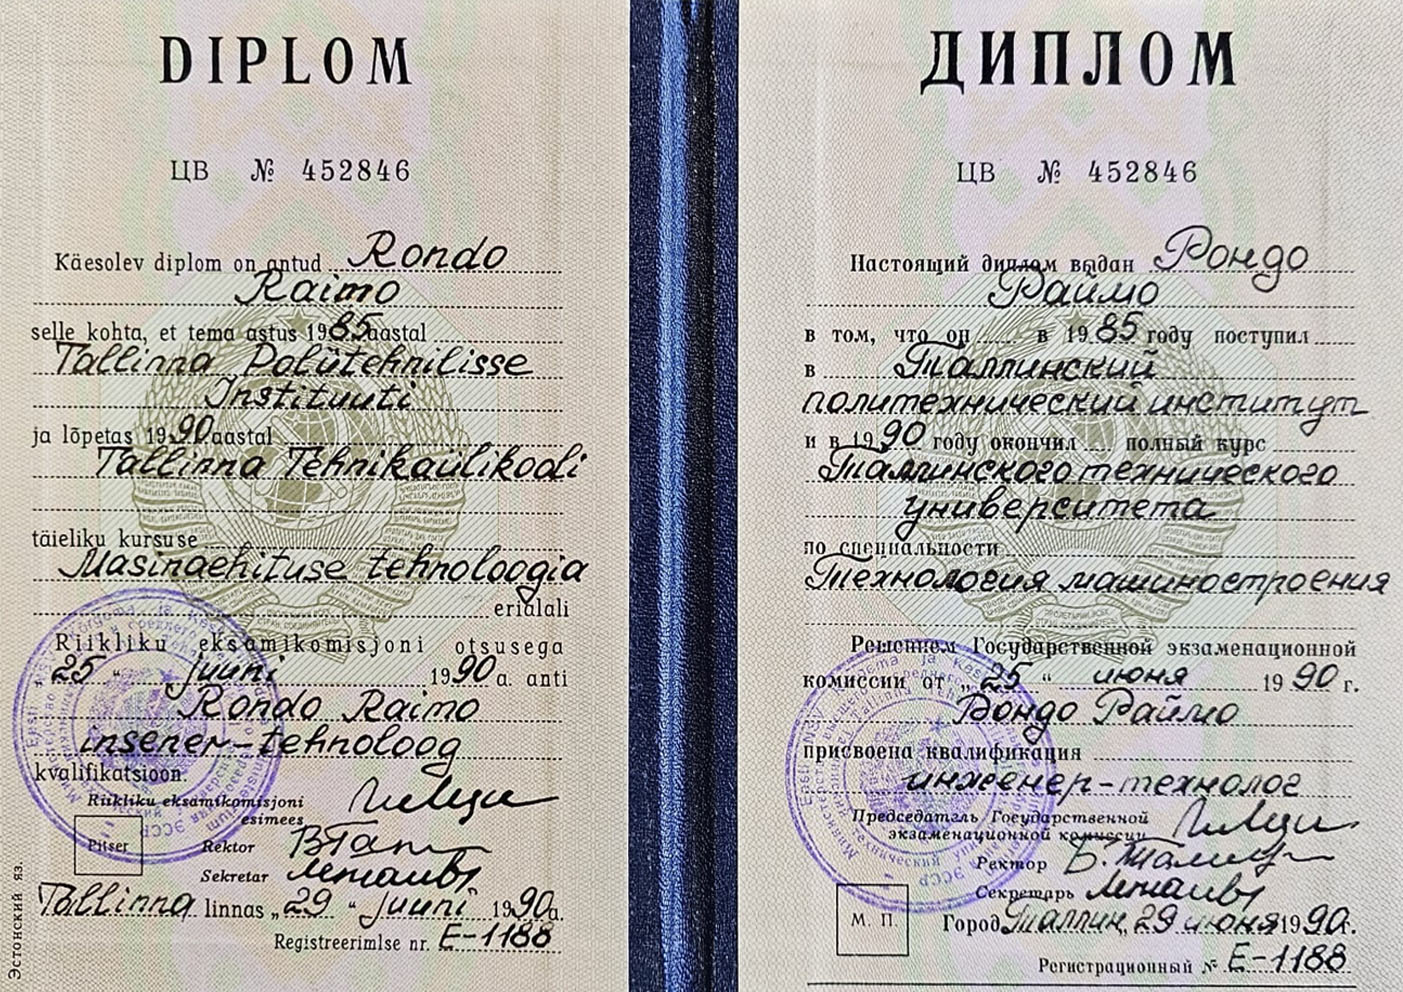 DIPLOM
ЦВ № 452846
Käesolev diplom on antud Rondo
Raimo
selle kohta, et tema astus 1985 aastal
Tallinna Polütehnilisse
Instituuti
ja lõpetas 1990 aastal
Tallinna Tehnikaülikooli
täieliku kursuse
Masinaehituse tehnoloogia
erialali
Riikliku eksamikomisjoni otsusega
25 " juuni 1990 a. anti
Rondo Raimo
insener-tehnoloog
kvalifikatsioon.
Riikliku eksamikomisjoni
esimees
Pitser
Rektor
Sekretar
Tallinna linnas „29 “ juuni 1990a.
Registreerimlse nr. E-1188
Эстонский яз.
ДИПЛОМ
ЦВ № 452846
Настоящий диплом выдан Рондо
Раймо
в том, что он в 1985 году поступил
в Таллинский
политехнический институт
и в 1990 году окончил полный курс
Таллинского технического
университета
по специальности
Технология машиностроения
Решением Государственной экзаменационной
комиссии от „25 “ июня 1990 г.
Рондо Раймо
присвоена квалификация
инженер-технолог
Председатель Государственной
экзаменационной комиссии
Ректор
Секретарь
М. П.
Город Таллин, 29 июня 1990г.
Регистрационный № E-1188